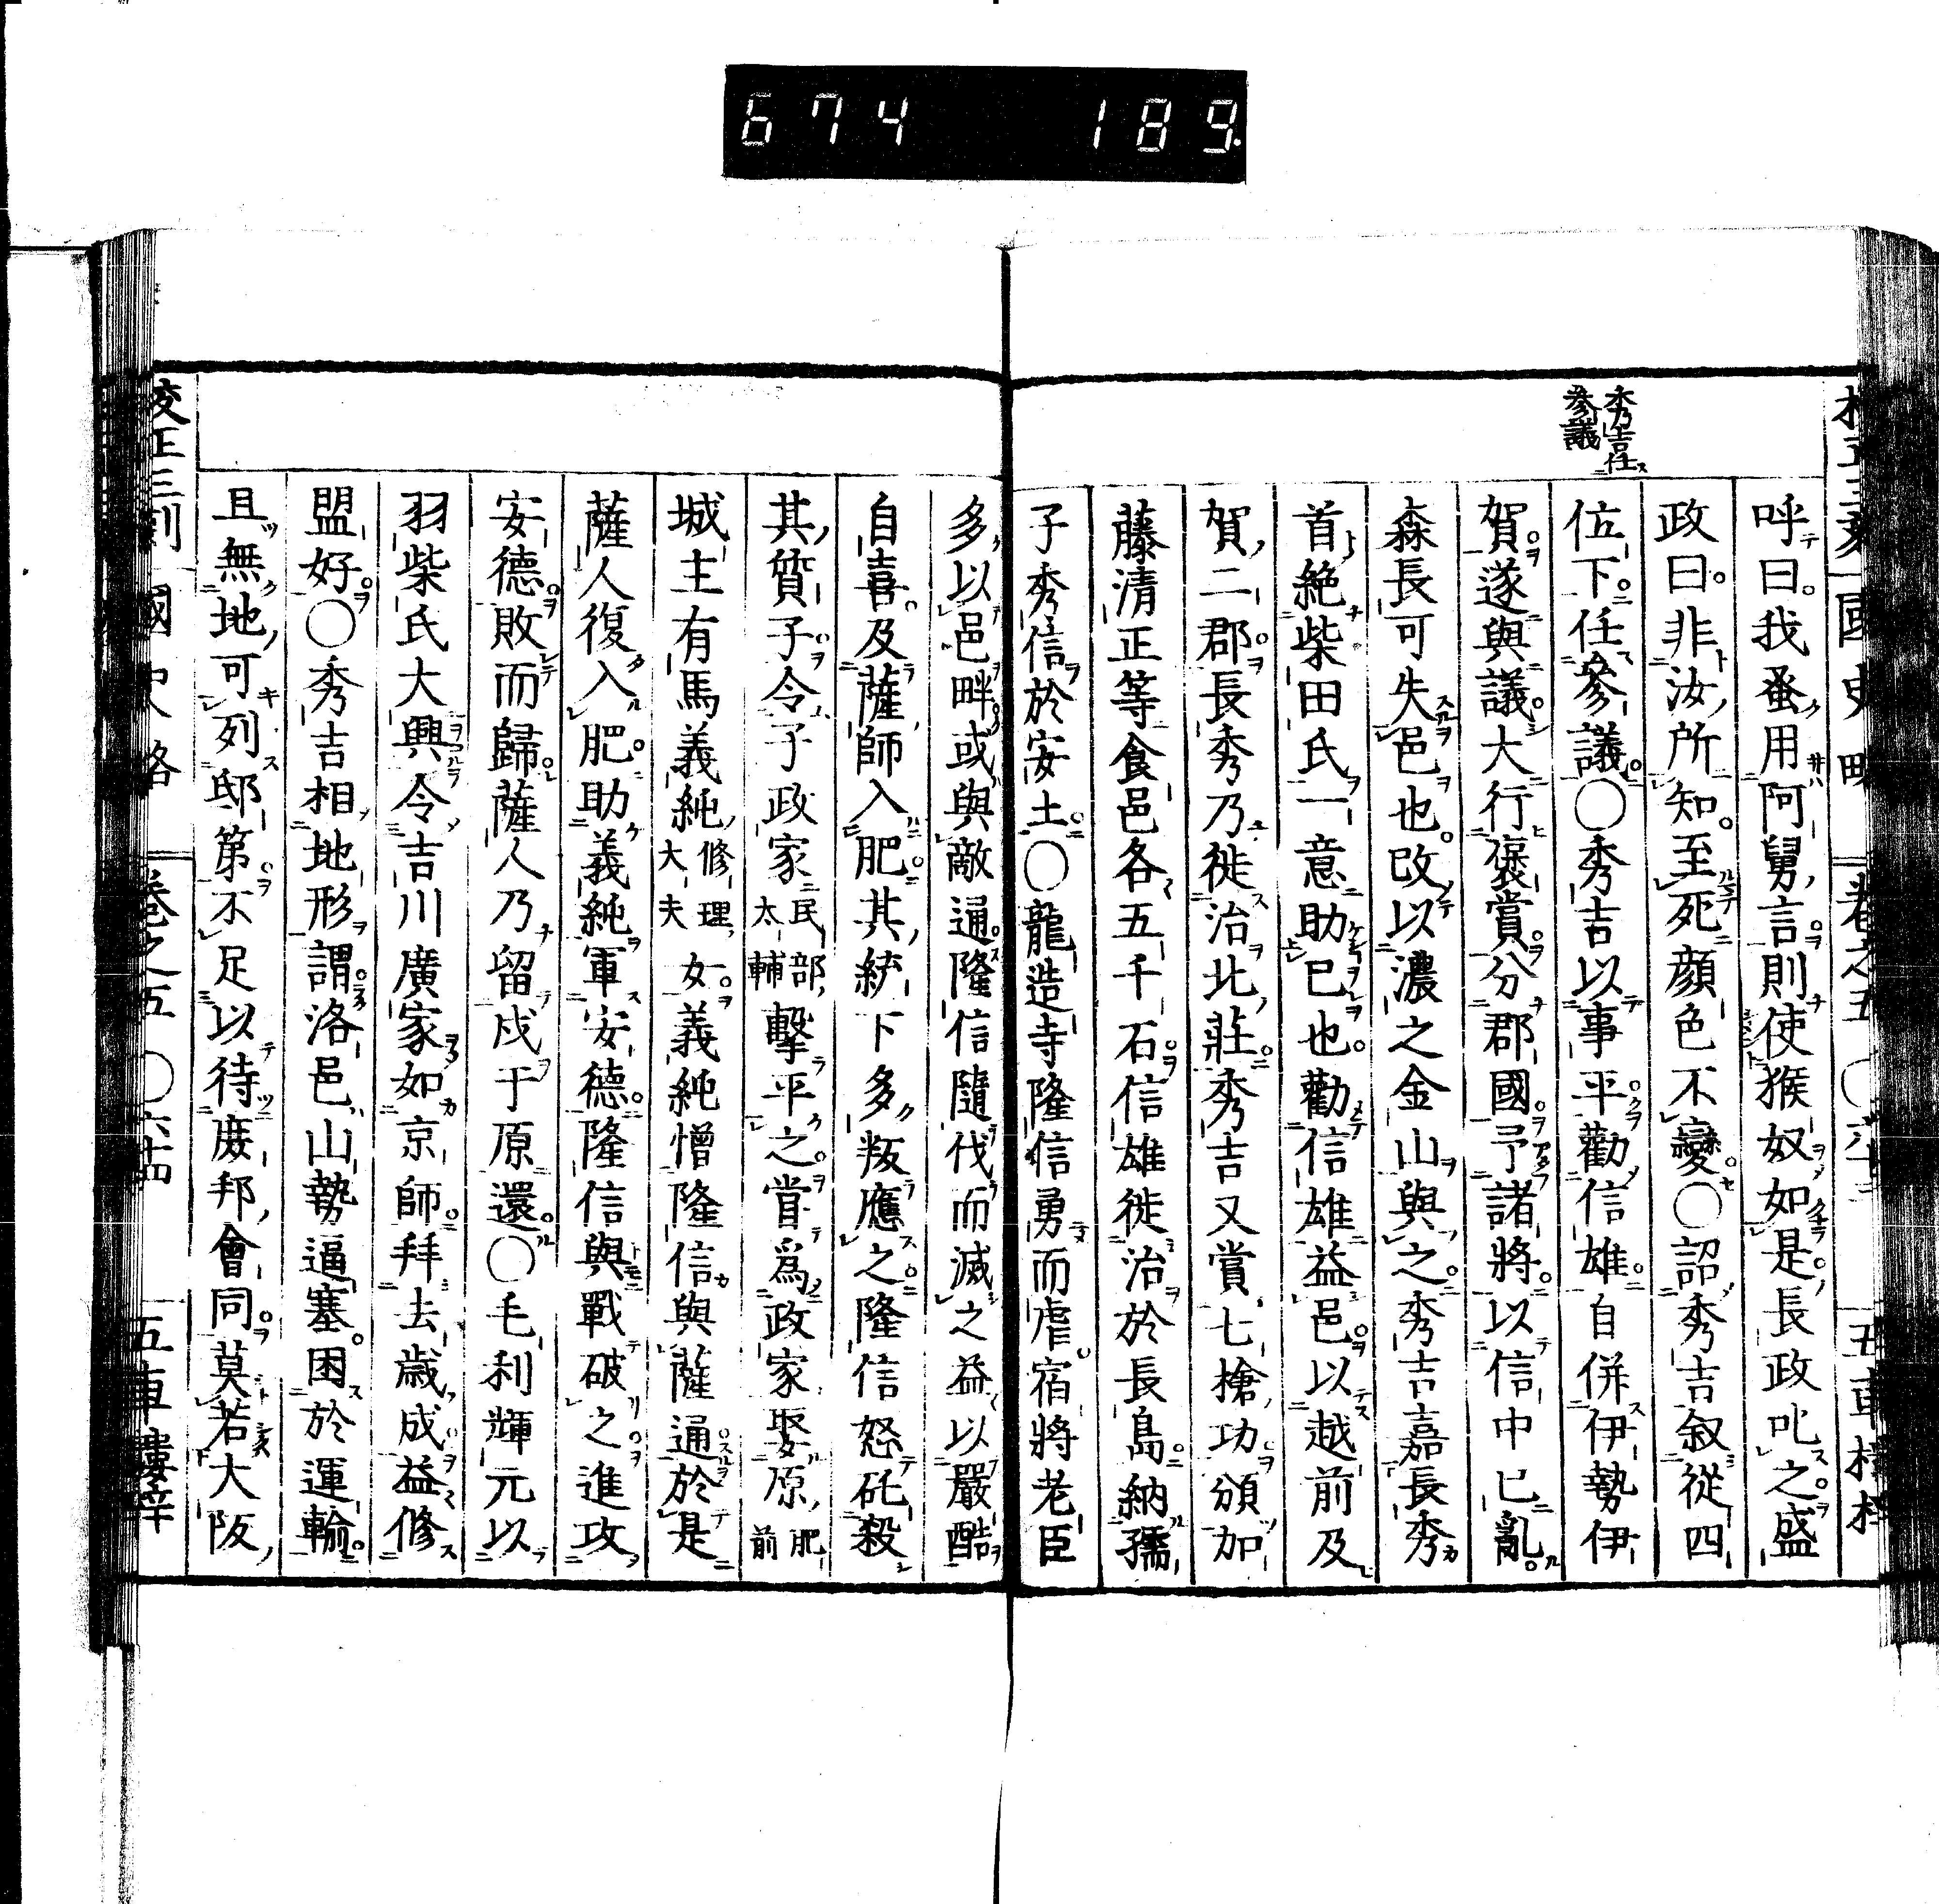 674 189.
國史略 卷之五
秀吉任
參議
呼曰我蚤用阿舅言則使猴奴如是長政叱之盛
政曰非汝所知至死顔色不變○詔秀吉叙從四
位下任參議○秀吉以事平勸信雄自併伊勢伊
賀遂與議大行褒賞分郡國予諸將以信中已亂
森長可失邑也改以濃之金山與之秀吉嘉長秀
首絶柴田氏一意助已也勸信雄益邑以越前及
賀二郡長秀乃徙治北莊秀吉又賞七槍功頒加
藤清正等食邑各五千石信雄徙治於長島納孺
子秀信於安土○龍造寺隆信勇而虐宿將老臣
多以邑畔或與敵通隆信隨伐而滅之益以嚴酷
自喜及薩師入肥其統下多叛應之隆信怒砥殺
其質子令子政家民部太輔擊平之嘗爲政家娶原肥前
城主有馬義純修理大夫女義純憎隆信與薩通於是
薩人復入肥助義純軍安德隆信與戰破之進攻
安德敗而歸薩人乃留戍于原還○毛利輝元以
羽柴氏大興令吉川廣家如京師拜去歲成益修
盟好○秀吉相地形謂洛邑山勢逼塞困於運輸
且無地可列邸第不足以待庶邦會同莫若大阪
校正三刻 國史略 卷之五 ○六十四 五車樓梓